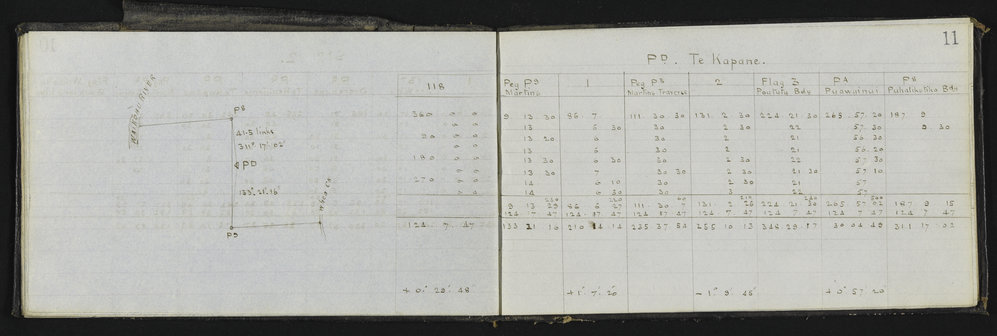 11
P D. Te Kapane.
WAIKOHU RIVER
P8
41.5 links
311° 17' 02"
PD
133° 21' 16"
P9
118
Peg P9 Martins
1
Peg P3 Martins Traverse
2
Flag 3 Poututu Bdy
PA Puawainui
P8
360 0 0
9 13 30
86 7
111 30 30
131 2 30
224 21 30
265 57 20
187 9
0 0
13
6 30
30
2 30
22
57 30
9 30
90 0 0
13 20
6
30
2
21
56 30
0 0
13
6
30
2
21
56 20
180 0 0
13 30
6 30
30
2 30
22
57 30
0 0
13 30
7
30 30
2 30
21 30
57 10
270 0 0
14
6 10
30
2 30
21
57
0 0
14
6 30
30
3
22
57
9 13 29
86 6 27
111 30 7
131 2 26
224 21 30
265 57 02
187 9 15
124 7 47
124 7 47
124 7 47
124 7 47
124 7 47
124 7 47
124 7 47
124 7 47
133 21 16
210 14 14
235 37 54
255 10 13
348 29 17
30 04 49
311 17 02
+ 0° 29' 48"
+ 1° 7' 26"
- 1° 9' 45"
+ 0° 57' 20"